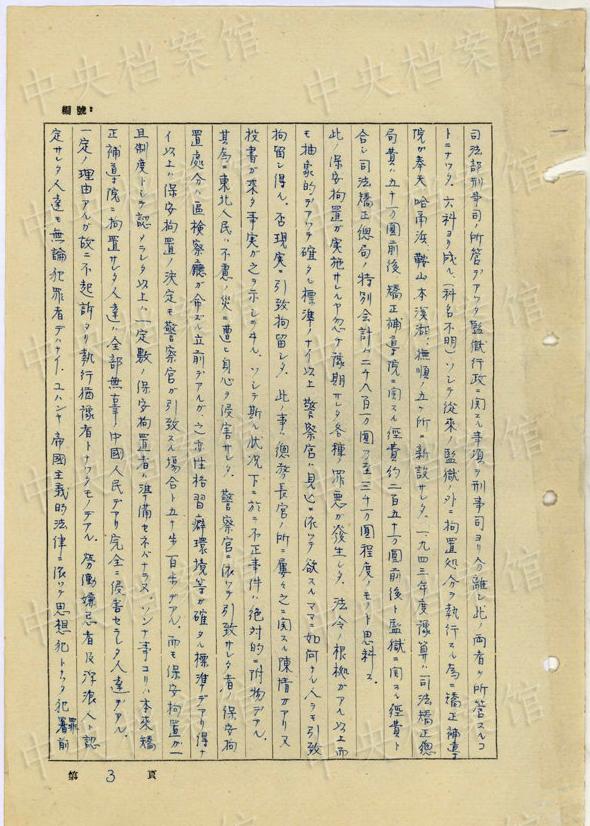 中央档案馆
編號:
司法部刑事司ノ所管デアツタ監獄行政ニ関スル事項ヲ刑事司ヨリ分離シ此ノ両者ヲ所管スルコ
トニナツタ。六科ヨリ成ル、(科名不明)ソシテ從来ノ監獄ノ外ニ拘置処分ヲ執行スル為ニ矯正補導
院ガ奉天、哈爾浜、鞍山、本溪湖、撫順ノ五ケ所ニ新設サレタ。一九四三年度豫算ハ司法矯正總
局費ハ五十万圓前後、矯正補導院ニ関スル経費約二百五十万圓前後ト監獄ニ関スル経費ト
合シ司法矯正總局ノ特別会計ハ二千八百万圓乃至三千万圓程度ノモノト思料ス。
此ノ保安拘置ガ実施サレルヤ忽チ豫期サレタ各種ノ罪悪ガ發生シタ。法令ノ根拠ガアル以上而
モ抽象的デアツテ確タル標準ノナイ以上警察官ハ見込ニ依ツテ欲スルママニ如何ナル人ヲモ引致
拘留シ得ル。否現実ニ引致拘留シタ。此ノ事ハ總務長官ノ所ニ屢々之ニ関スル陳情ガアリ又
投書ガ来タ事実ガ之ヲ示シテヰル。ソシテ斯ル状況下ニ於テ不正事件ハ絶対的ニ附物デアル。
其為ニ東北人民ハ不慮ノ災ニ遭ヒ身心ヲ侵害サレタ。警察官ニ依ツテ引致サレタ者ノ保安拘
置處分ハ區検察廳ガ命ズル立前デアルガ、之亦性格習癖環境等ガ確タル標準デアリ得ナ
イ以上ハ保安拘置ノ決定モ警察官ガ引致スル場合ト五十歩百歩デアル。而モ保安拘置ガ一
旦制度トシテ認メラレタ以上ハ一定数ノ保安拘置者ハ準備セネバナラヌ。ソンナ事ヨリハ本来矯
正補導院ニ拘置サレタ人達ハ全部無辜ノ中國人民デアリ完全ニ侵害セラレタ人達デアル。
一定ノ理由アルガ故ニ不起訴ヨリ執行猶豫者トナツタモノデアル。労働嫌忌者及浮浪人ト認
定サレタ人達モ無論犯罪者デハナイ。ユハンヤ帝國主義的法律ニ依ツテ思想犯トナツタ犯罪者前
第 3 頁